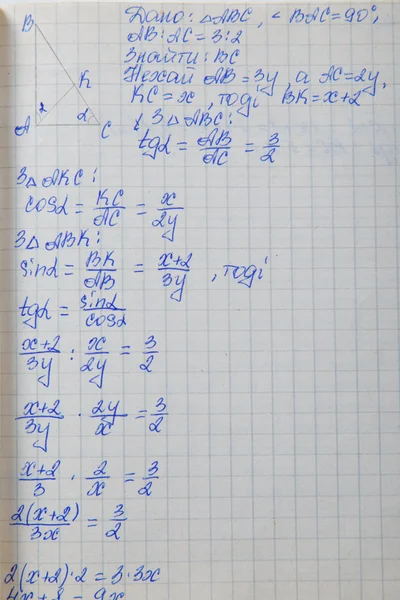 Дано: △ABC, ∠BAC=90°,
AB:AC=3:2
Знайти: BC
Нехай AB=3y, а AC=2y,
KC=x, тоді BK=x+2
З △ABC:
tgα = AB/AC = 3/2
B
K
A
α
α
C
З△AKC:
cosα = KC/AC = x/2y
З△ABK:
sinα = BK/AB = x+2/3y, тоді
tgα = sinα/cosα
x+2/3y : x/2y = 3/2
x+2/3y · 2y/x = 3/2
x+2/3 · 2/x = 3/2
2(x+2)/3x = 3/2
2(x+2)·2=3·3x
4x+8=9x